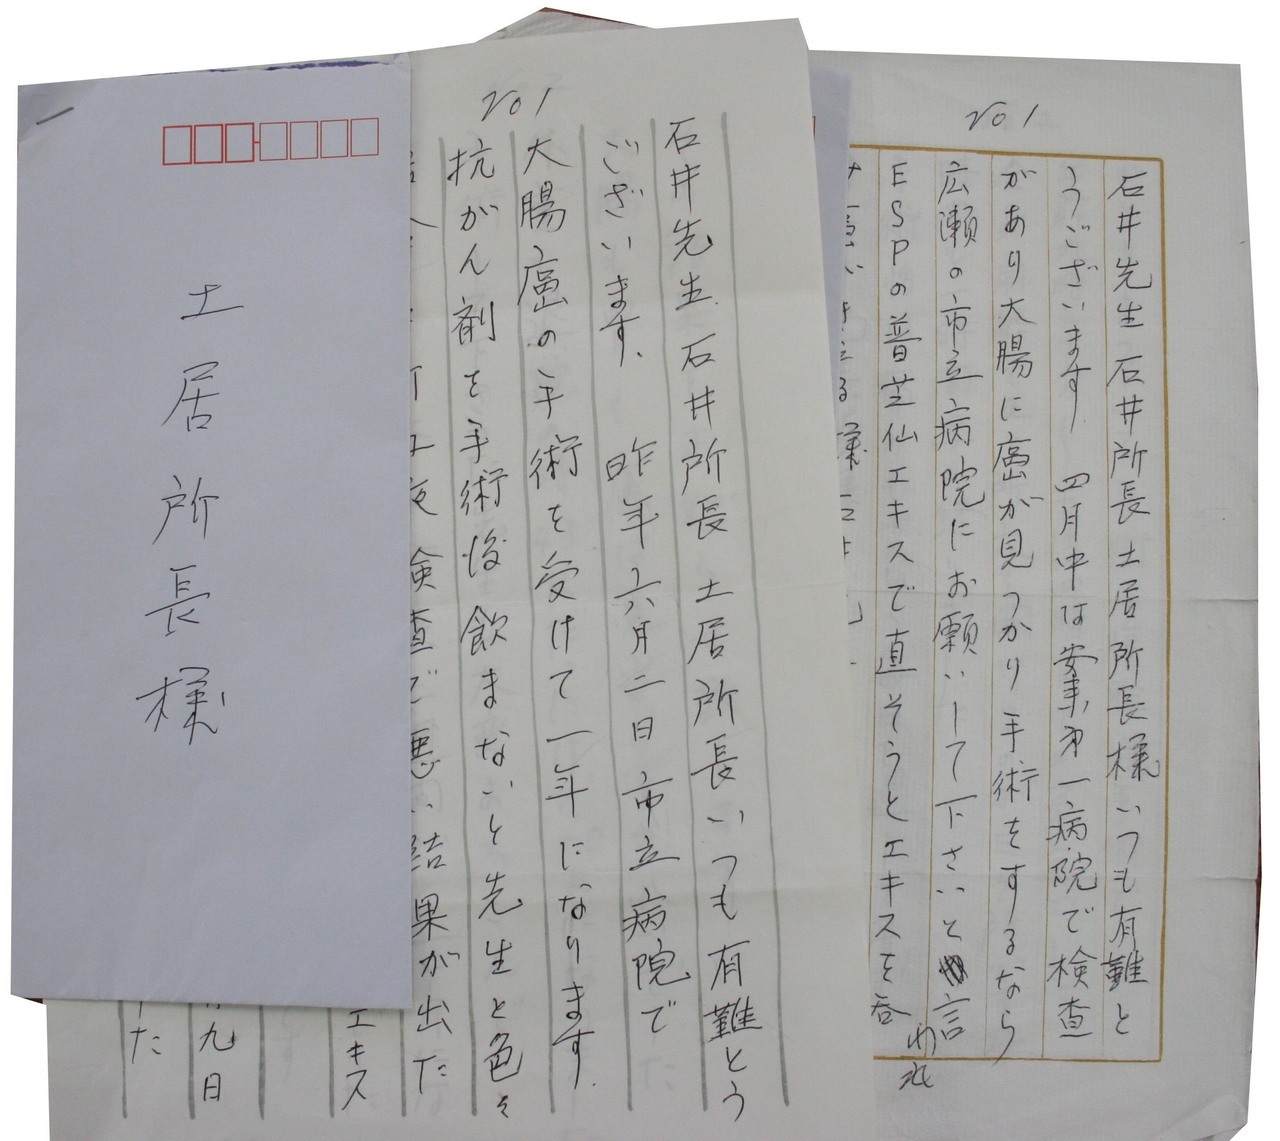 No1
石井先生 石井所長 土居所長様いつも有難と
うございます 四月中は安来第一病院で検査
があり大腸に癌が見つかり手術をするなら
広瀬の市立病院にお願いして下さいと言
われ
ESPの普芝仙エキスで直そうとエキスを呑
No1
石井先生 石井所長 土居所長いつも有難とう
ございます、昨年六月二日市立病院で
大腸癌の手術を受けて一年になります。
抗がん剤を手術後飲まないと先生と色々
検査で悪い結果が出た
エキス
九日
た
土居所長様